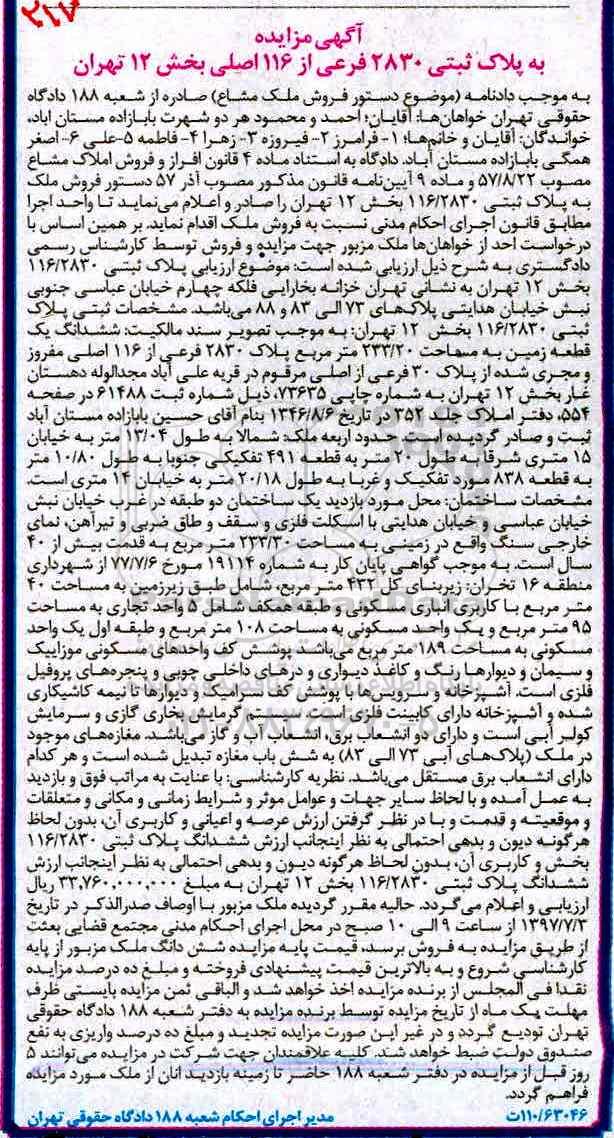 ۲۱۷
آگهی مزایده
به پلاک ثبتی ۲۸۳۰ فرعی از ۱۱۶ اصلی بخش ۱۲ تهران
به موجب دادنامه (موضوع دستور فروش ملک مشاع) صادره از شعبه ۱۸۸ دادگاه
حقوقی تهران خواهان‌ها: آقایان؛ احمد و محمود هر دو شهرت بابازاده مستان اباد،
خواندگان: آقایان و خانم‌ها؛ ۱- فرامرز ۲- فیروزه ۳- زهرا ۴- فاطمه ۵-علی ۶- اصغر
همگی بابازاده مستان آباد. دادگاه به استناد ماده ۴ قانون افراز و فروش املاک مشاع
مصوب ۵۷/۸/۲۲ و ماده ۹ آیین‌نامه قانون مذکور مصوب آذر ۵۷ دستور فروش ملک
به پلاک ثبتی ۱۱۶/۲۸۳۰ بخش ۱۲ تهران را صادر و اعلام می‌نماید تا واحد اجرا
مطابق قانون اجرای احکام مدنی نسبت به فروش ملک اقدام نماید. بر همین اساس با
درخواست احد از خواهان‌ها ملک مزبور جهت مزایده و فروش توسط کارشناس رسمی
دادگستری به شرح ذیل ارزیابی شده است: موضوع ارزیابی پلاک ثبتی ۱۱۶/۲۸۳۰
بخش ۱۲ تهران به نشانی تهران خزانه بخارایی فلکه چهارم خیابان عباسی جنوبی
نبش خیابان هدایتی پلاک‌های ۷۳ الی ۸۳ و ۸۸ می‌باشد. مشخصات ثبتی پلاک
ثبتی ۱۱۶/۲۸۳۰ بخش ۱۲ تهران: به موجب تصویر سند مالکیت: ششدانگ یک
قطعه زمین به مساحت ۲۳۳/۲۰ متر مربع پلاک ۲۸۳۰ فرعی از ۱۱۶ اصلی مفروز
و مجری شده از پلاک ۳۰ فرعی از اصلی مرقوم در قریه علی آباد مجدالوله دهستان
غار بخش ۱۲ تهران به شماره چاپی ۷۳۶۳۵، ذیل شماره ثبت ۶۱۴۸۸ در صفحه
۵۵۴، دفتر املاک جلد ۳۵۲ در تاریخ ۱۳۴۶/۸/۶ بنام آقای حسین بابازاده مستان آباد
ثبت و صادر گردیده است. حدود اربعه ملک: شمالا به طول ۱۳/۰۴ متر به خیابان
۱۵ متری شرقا به طول ۲۰ متر به قطعه ۴۹۱ تفکیکی جنوبا به طول ۱۰/۸۰ متر
به قطعه ۸۳۸ مورد تفکیک و غربا به طول ۲۰/۱۸ متر به خیابان ۱۴ متری است.
مشخصات ساختمان: محل مورد بازدید یک ساختمان دو طبقه در غرب خیابان نبش
خیابان عباسی و خیابان هدایتی با اسکلت فلزی و سقف و طاق ضربی و تیرآهن، نمای
خارجی سنگ واقع در زمینی به مساحت ۲۳۳/۳۰ متر مربع به قدمت بیش از ۴۰
سال است. به موجب گواهی پایان کار به شماره ۱۹۱۱۴ مورخ ۷۷/۷/۶ از شهرداری
منطقه ۱۶ تخران: زیربنای کل ۴۳۲ متر مربع، شامل طبق زیرزمین به مساحت ۴۰
متر مربع با کاربری انباری مسکونی و طبقه همکف شامل ۵ واحد تجاری به مساحت
۹۵ متر مربع و یک واحد مسکونی به مساحت ۱۰۸ متر مربع و طبقه اول یک واحد
مسکونی به مساحت ۱۸۹ متر مربع می‌باشد پوشش کف واحدهای مسکونی موزاییک
و سیمان و دیوارها رنگ و کاغذ دیواری و درهای داخلی چوبی و پنجره‌های پروفیل
فلزی است. آشپزخانه و سرویس‌ها با پوشش کف سرامیک و دیوارها تا نیمه کاشیکاری
شده و آشپزخانه دارای کابینت فلزی است. سیستم گرمایش بخاری گازی و سرمایش
کولر آبی است و دارای دو انشعاب برق، انشعاب آب و گاز می‌باشد. مغازه‌های موجود
در ملک (پلاک‌های آبی ۷۳ الی ۸۳) به شش باب مغازه تبدیل شده است و هر کدام
دارای انشعاب برق مستقل می‌باشد. نظریه کارشناسی: با عنایت به مراتب فوق و بازدید
به عمل آمده و با لحاظ سایر جهات و عوامل موثر و شرایط زمانی و مکانی و متعلقات
و موقعیته و قدمت و با در نظر گرفتن ارزش عرصه و اعیانی و کاربری آن، بدون لحاظ
هرگونه دیون و بدهی احتمالی به نظر اینجانب ارزش ششدانگ پلاک ثبتی ۱۱۶/۲۸۳۰
بخش و کاربری آن، بدون لحاظ هرگونه دیون و بدهی احتمالی به نظر اینجانب ارزش
ششدانگ پلاک ثبتی ۱۱۶/۲۸۳۰ بخش ۱۲ تهران به مبلغ ۳۲,۷۶۰,۰۰۰,۰۰۰ ریال
ارزیابی و اعلام می‌گردد. حالیه مقرر گردیده ملک مزبور با اوصاف صدرالذکر در تاریخ
۱۳۹۷/۷/۳ از ساعت ۹ الی ۱۰ صبح در محل اجرای احکام مدنی مجتمع قضایی بعثت
از طریق مزایده به فروش برسد، قیمت پایه مزایده شش دانگ ملک مزبور از پایه
کارشناسی شروع و به بالاترین قیمت پیشنهادی فروخته و مبلغ ده درصد مزایده
نقدا فی المجلس از برنده مزایده اخذ خواهد شد و الباقی ثمن مزایده بایستی ظرف
مهلت یک ماه از تاریخ مزایده توسط برنده مزایده به دفتر شعبه ۱۸۸ دادگاه حقوقی
تهران تودیع گردد و در غیر این صورت مزایده تجدید و مبلغ ده درصد واریزی به نفع
صندوق دولت ضبط خواهد شد. کلیه علاقمندان جهت شرکت در مزایده می‌توانند ۵
روز قبل از مزایده در دفتر شعبه ۱۸۸ حاضر تا زمینه بازدید انان از ملک مورد مزایده
فراهم گردد.
۱۱۰/۶۳۰۴۶ت مدیر اجرای احکام شعبه ۱۸۸ دادگاه حقوقی تهران